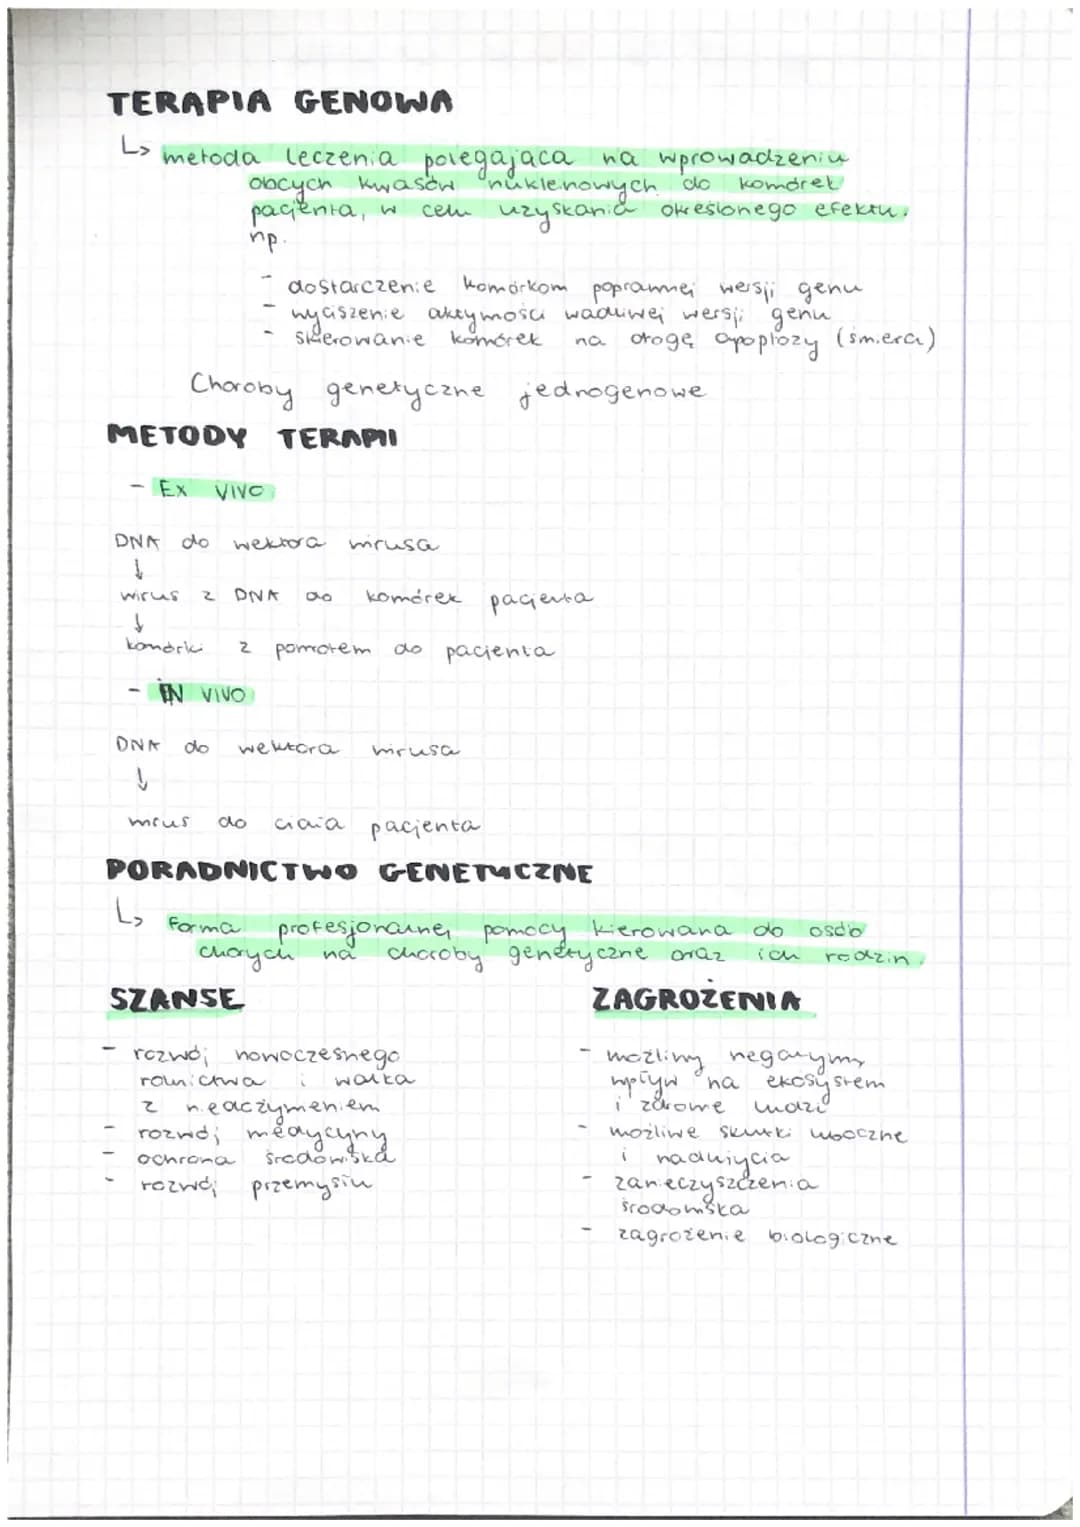 TERAPIA GENOWA
↳ metoda leczenia polegająca na wprowadzeniu
obcych kwasów nukleinowych do komórek
pacjenta, w celu uzyskania określonego efektu.
np.
- dostarczenie komórkom poprawnej wersji genu
- wyciszenie aktywności wadliwej wersji genu
- skierowanie komórek na drogę apoptozy (śmierci)
Choroby genetyczne jednogenowe
METODY TERAPII
- EX VIVO
DNA do wektora wirusa
↓
wirus z DNA do komórek pacjenta
↓
komórki z powrotem do pacjenta
- IN VIVO
DNA do wektora wirusa
↓
wirus do ciała pacjenta
PORADNICTWO GENETYCZNE
↳ forma profesjonalnej pomocy kierowana do osób
chorych na choroby genetyczne oraz ich rodzin.
SZANSE
- rozwój nowoczesnego
rolnictwa i walka
z niedożywieniem
- rozwój medycyny
- ochrona środowiska
- rozwój przemysłu
ZAGROŻENIA
- możliwy negatywny
wpływ na ekosystem
i zdrowie ludzi
- możliwe skutki uboczne
i nadużycia
- zanieczyszczenia
środowiska
- zagrożenie biologiczne